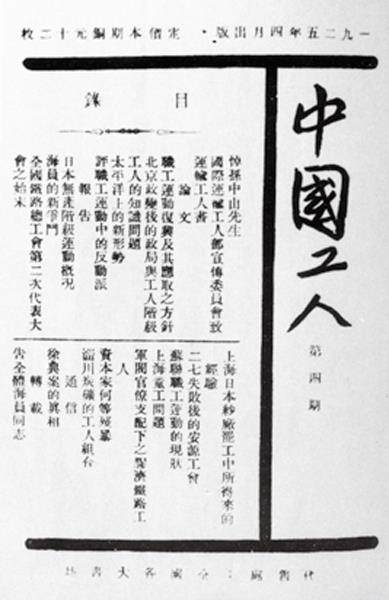 一九二五年四月出版・定價本期銅元十二枚
中國工人
第四期
目錄
悼孫中山先生
國際運輸工人部宣傳委員會致
運輸工人書
論文
職工運動復興及其應取之方針
北京政變後的政局與工人階級
工人的知識問題
太平洋上的新形勢
評職工運動中的反動派
報告
日本無產階級運動概況
海員的新奮鬥
全國鐵路總工會第二次代表大
會之始末
上海日本紗廠罷工中所得來的
經驗
二七失敗後的安源工會
蘇聯職工運動的現狀
上海童工問題
軍閥官僚支配下之膠濟鐵路工
人
資本家何等殘暴
淄川炭礦的工人組合
通信
案的真相
轉載
告全體海員同志
代售處：全國各大書坊